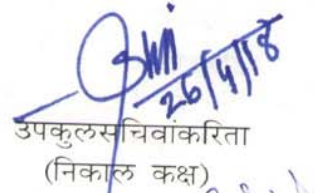 26/4/18
उपकुलसचिवांकरिता
(निकाल कक्ष)